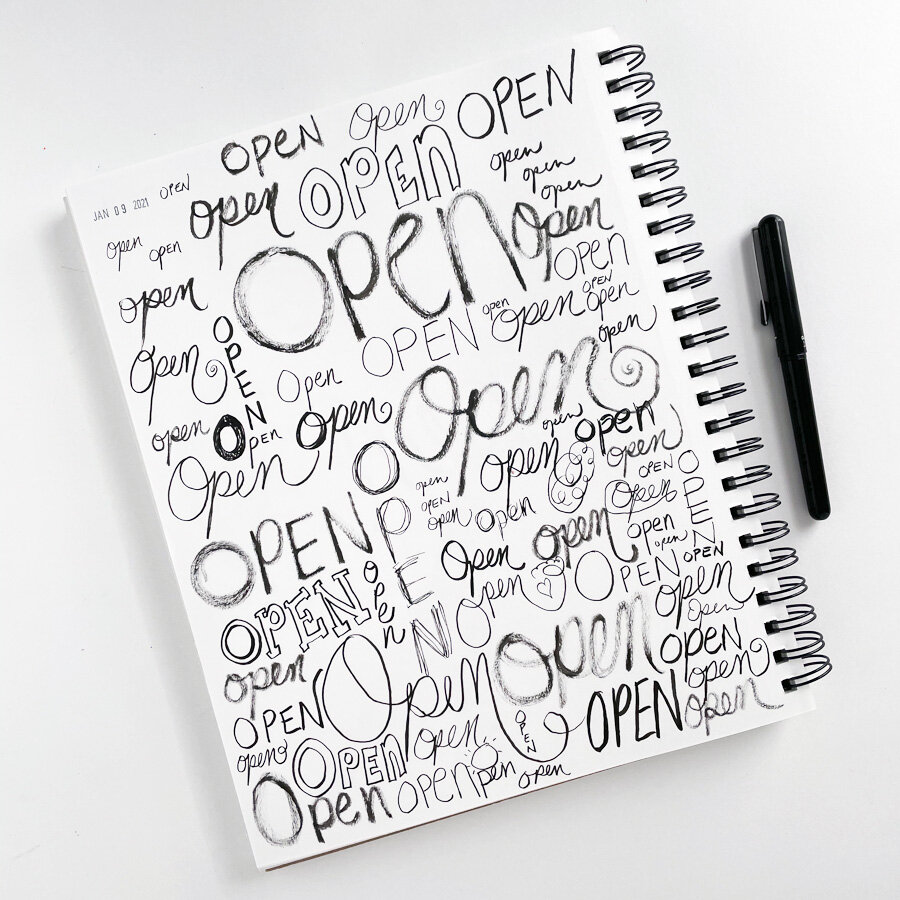 Open
OPEN
OPEN
OPEn
JAN 09 2021
OPEN
open
open
open
open
Open
Open
open
open
OPEN
open
OPEN
OPEN
open
Open
OPEN
open
Open
OPEN
Open
Open
open
Open
Open
open
open
Open
OPEN
open
OPEN
open
open
open
OPEN
Open
OPEN
Open
open
open
open
OPEN
OPEN
Open
OPEN
OPEN
open
Open
open
Open
open
Open
Open
OPEN
open
open
OPEN
OPEN
OPEN
open
Open
open
Open
open
Open
open